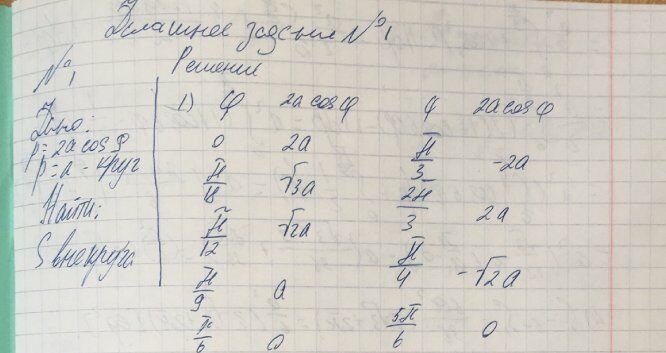 Домашнее задание №1
№1
Решение
Дано:
ρ=2a cosφ
ρ=a - круг
Найти:
S вне круга
1) φ 2a cosφ φ 2a cosφ
0 2a π/3 -2a
π/18 √3a 2π/3 2a
π/12 √2a π/4 -√2a
π/9 a 5π/6 0
π/6 0